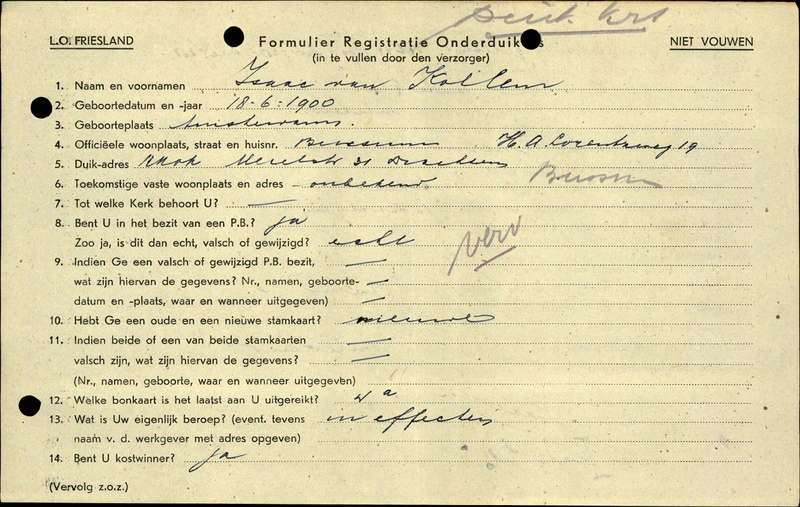 L.O. FRIESLAND
Formulier Registratie Onderduikers
NIET VOUWEN
(in te vullen door den verzorger)
1. Naam en voornamen Isaac van Kollem
2. Geboortedatum en -jaar 18-6-1900
3. Geboorteplaats Amsterdam.
4. Officiëele woonplaats, straat en huisnr. Bussum H. A. Lorentzweg 19
5. Duik-adres 31 Drachten
6. Toekomstige vaste woonplaats en adres - onbekend. Bussum
7. Tot welke Kerk behoort U? —
8. Bent U in het bezit van een P.B.? ja
Zoo ja, is dit dan echt, valsch of gewijzigd? echt
verv
9. Indien Ge een valsch of gewijzigd P.B. bezit, —
wat zijn hiervan de gegevens? Nr., namen, geboorte- —
datum en -plaats, waar en wanneer uitgegeven) —
10. Hebt Ge een oude en een nieuwe stamkaart? nieuwe
11. Indien beide of een van beide stamkaarten —
valsch zijn, wat zijn hiervan de gegevens? —
(Nr., namen, geboorte, waar en wanneer uitgegeven)
12. Welke bonkaart is het laatst aan U uitgereikt? w a
13. Wat is Uw eigenlijk beroep? (event. tevens in effecten
naam v. d. werkgever met adres opgeven)
14. Bent U kostwinner? ja
(Vervolg z.o.z.)